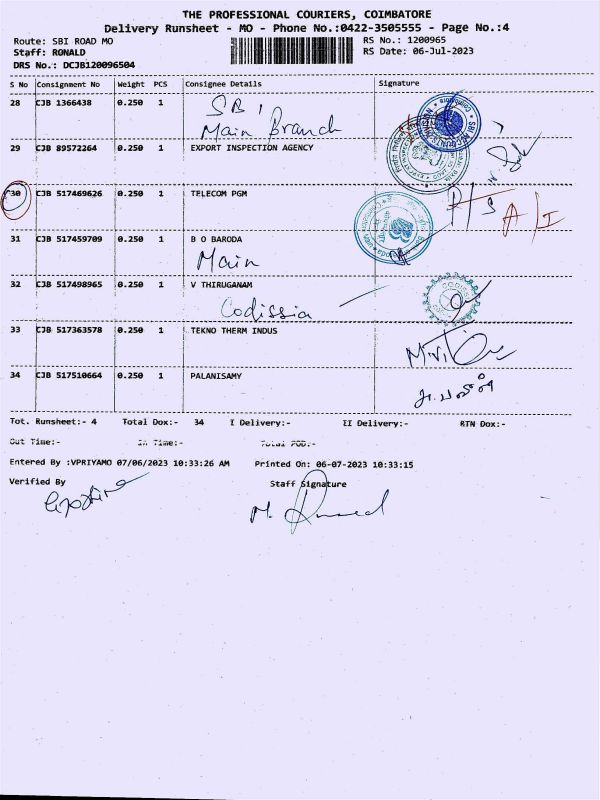 THE PROFESSIONAL COURIERS, COIMBATORE
Delivery Runsheet - MO - Phone No.:0422-3505555 - Page No.:4
Route: SBI ROAD MO RS No.: 1200965
Staff: RONALD RS Date: 06-Jul-2023
DRS No.: DCJB120096504
S No Consignment No Weight PCS Consignee Details Signature
28 CJB 1366438 0.250 1 SBI
Main Branch
29 CJB 89572264 0.250 1 EXPORT INSPECTION AGENCY
30 CJB 517469626 0.250 1 TELECOM PGM
31 CJB 517459709 0.250 1 B O BARODA
Main
32 CJB 517498965 0.250 1 V THIRUGANAM
Codissia
33 CJB 517363578 0.250 1 TEKNO THERM INDUS
34 CJB 517510664 0.250 1 PALANISAMY
Tot. Runsheet:- 4 Total Dox:- 34 I Delivery:- II Delivery:- RTN Dox:-
Out Time:- In Time:- Total POD:-
Entered By :VPRIYAMO 07/06/2023 10:33:26 AM Printed On: 06-07-2023 10:33:15
Verified By Staff Signature